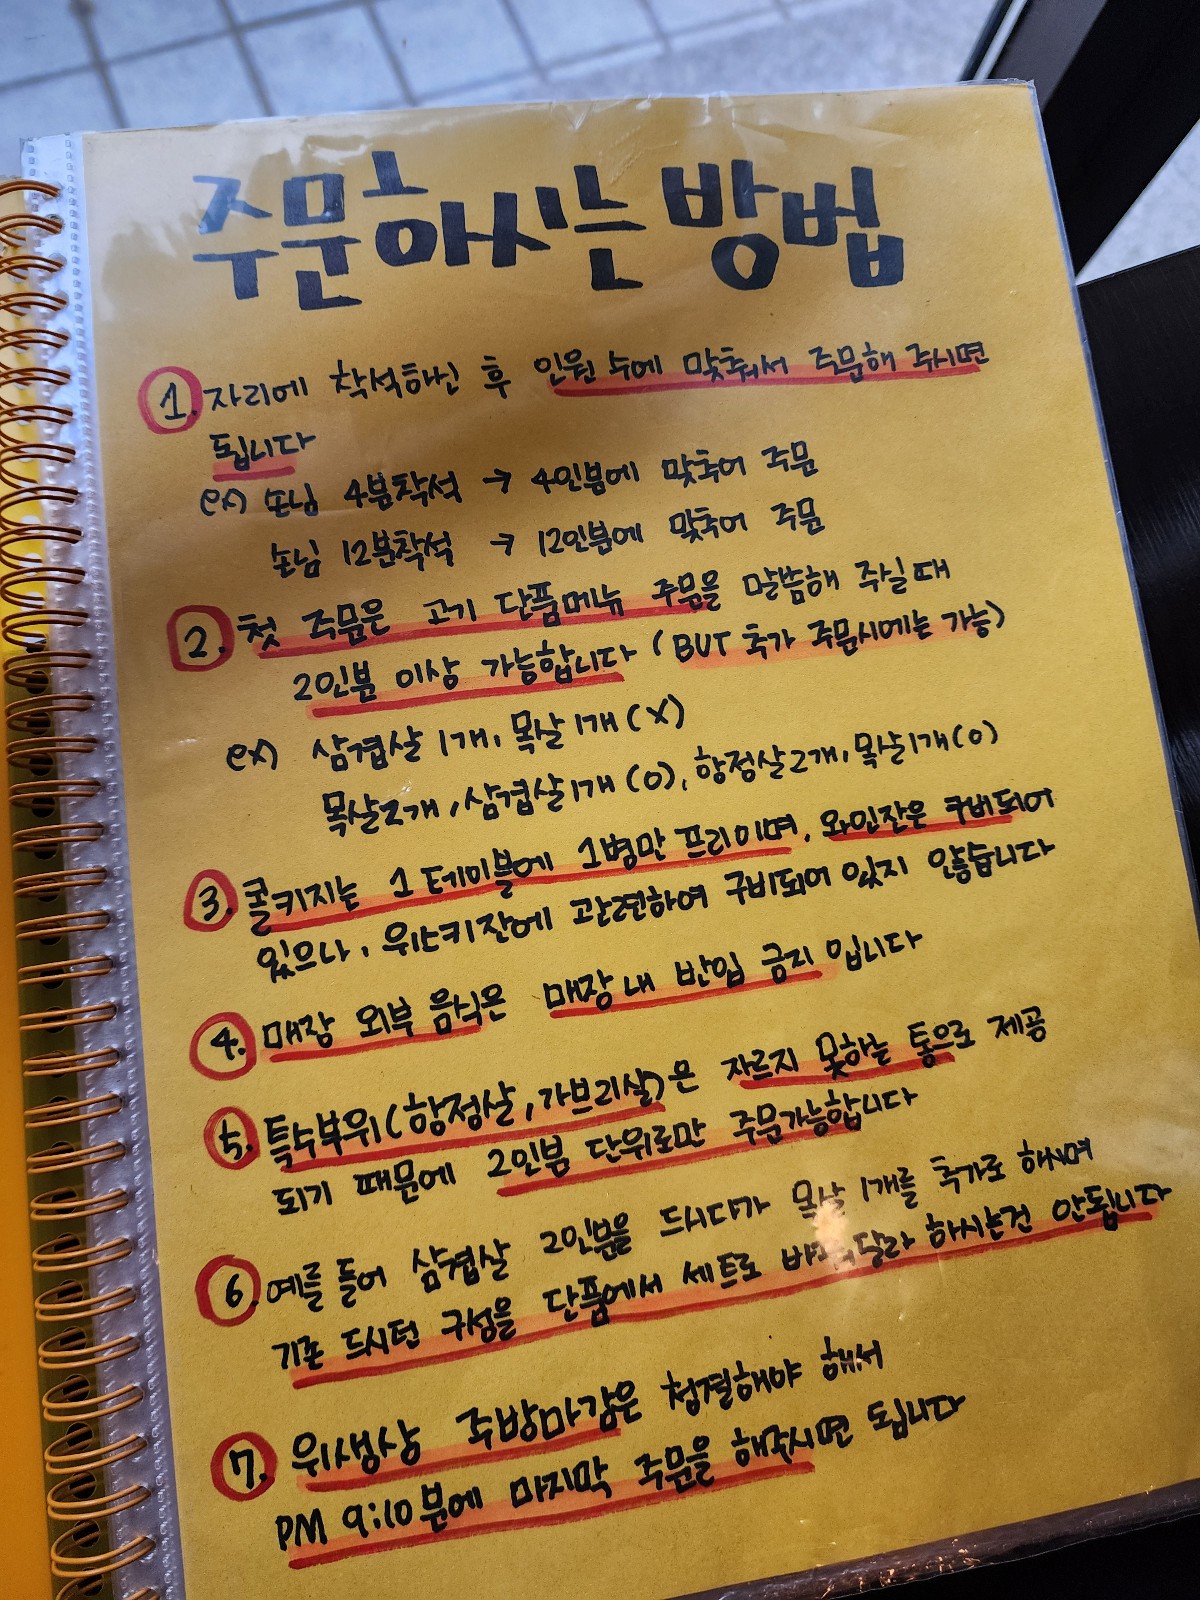 주문하시는 방법
1. 자리에 착석하신 후 인원 수에 맞춰서 주문해 주시면
됩니다
ex) 손님 4분착석 → 4인분에 맞추어 주문
손님 12분착석 → 12인분에 맞추어 주문
2. 첫 주문은 고기 단품메뉴 주문을 말씀해 주실 때
2인분 이상 가능합니다 (BUT 추가 주문시에는 가능)
ex) 삼겹살 1개, 목살 1개 (X)
목살2개, 삼겹살1개 (O), 항정살2개, 목살1개(O)
3. 콜키지는 1 테이블에 1병만 프리이며, 와인잔은 구비되어
있으나, 위스키잔에 관련하여 구비되어 있지 않습니다
4. 매장 외부 음식은 매장 내 반입 금지 입니다
5. 특수부위(항정살, 가브리살)은 자르지 못하는 통으로 제공
되기 때문에 2인분 단위로만 주문가능합니다
6. 예를 들어 삼겹살 2인분을 드시다가 목살 1개를 추가로 하시며
기존 드시던 구성을 단품에서 세트로 바꿔달라 하시는건 안됩니다
7. 위생상 주방마감은 청결해야 해서
PM 9:10분에 마지막 주문을 해주시면 됩니다